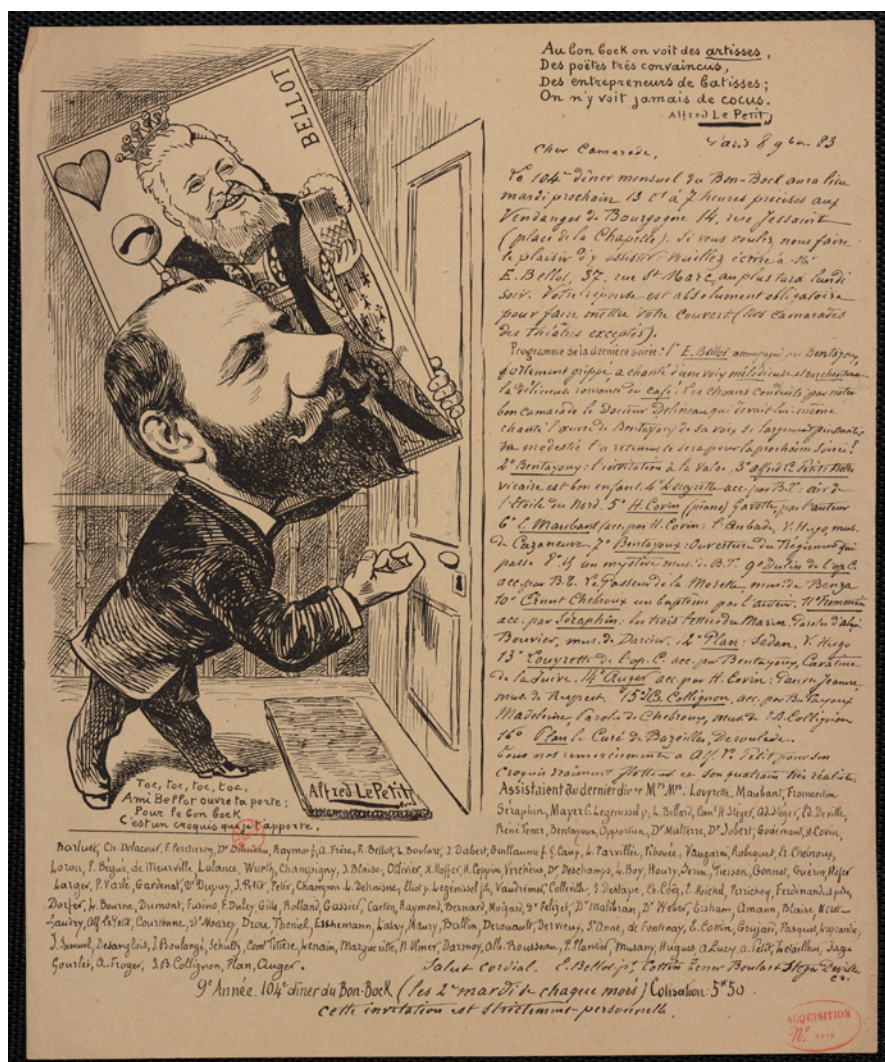 BELLOT
Toc, toc, toc, toc,
Ami Bellot ouvre ta porte ;
Pour le bon bock
C'est un croquis que je t'apporte.
Alfred Le Petit
Au bon bock on voit des artisses,
Des poëtes très convaincus,
Des entrepreneurs de batisses ;
On n'y voit jamais de cocus.
Alfred Le Petit
Paris 8 9bre 83
Cher Camarade,
Le 104e dîner mensuel du Bon-Bock aura lieu
mardi prochain 13 ct à 7 heures précises aux
Vendanges de Bourgogne 14, rue Jessaint
(place de la Chapelle). Si vous voulez nous faire
le plaisir d'y assister veuillez écrire à Mr
E. Bellot, 37, rue St Marc, au plus tard lundi
soir. Votre réponse est absolument obligatoire
pour faire mettre votre couvert (nos camarades
des théâtres exceptés).
Programme de la dernière soirée : 1º E. Bellot accompagné par Bentayoux,
fortement grippé a chanté d'une voix mélodieuse et enchanteresse
la délicieuse romance du café. Les chœurs conduits par notre
bon camarade le docteur Delineau qui devait lui-même
chanter l'œuvre de Bentayoux de sa voix si
sa modestie l'a retenu, ce sera pour la prochaine soirée !
2º Bentayoux : l'invitation à la Valse. 3º Alfred Le Petit : Notre
vicaire est bon enfant. 4º Louyrette acc. par B.T. : air de
l'Étoile du Nord. 5º H. Corin (piano) Gavotte, par l'auteur
6º C. Maubant acc. par H. Corin : l'Aubade, V. Hugo, mus.
de Cazaneuve. 7º Bentayoux : Ouverture du Régiment qui
passe 8º id un mystère mus. de B.T. 9º Dulin de l'op. C.
acc. par B.T. Le Passeur de la Moselle, mus. de Benza
10º Ernest Chebroux un baptême par l'auteur. 11º Fromentin
acc. par Séraphin : les trois lettres du Marin. Paroles d'Alexis
Bouvier, mus. de Darcier. 12º Plan : Sedan, V. Hugo
13º Louyrette de l'op. C. acc. par Bentayoux, Cavatine
de la Juive. 14º Auger acc. par H. Corin : Pauvre Jeanne,
mus. de Rupert. 15º J.B. Collignon, acc. par Bentayoux
Madeleine, Paroles de Chebroux, mus. de J.B. Collignon
16º Plan le Curé de Bazeilles, Deroulède.
Tous nos remerciements à Alf. Le Petit pour son
croquis vraiment flatteur et son quatrain très réaliste.
Assistaient au dernier dîner Mrs. Louyrette, Maubant, Fromentin
Séraphin, Mayer, C. Legenissel p, L. Billard, Cam. H. Steger, Ad. Steger, Ed. Deville,
René Tener, Bentayoux, Opportun, Dr Maltière, Dr Jobert, Godemant, H. Corin,
Barluet, Ch. Delacour, F. Percheron, Dr Delineau, Raymond, A. Frère, R. Bellot, L. Boulart, J. Dabert, Guillaume f, G. Cauz, L. Parvillée, Pibouée, Vaugarni, Robiquet, Er. Chebroux,
Loron, P. Bégué, de Meurville, Lalance, Wurth, Champigny, J. Blaise, Ollivier, X. Hoffer, H. Coppin, Verchère, Dr Deschamps, L. Boy, Houry, Serin, Pierson, Bonnot, Guérin, Hofer
Larger, P. Varlé, Gardenat, Dr Dupuy, J. Petit, Peter, Champon, L. Detraisne, Eliot p, Legénissel fd, Vaudremer, Colleville, S. Deslaye, Ch. Loez, E. Reichel, Perrichey, Ferdinandus père,
Dorfer, L. Bourne, Durmont, Furino, E. Duley, Gille, Rolland, Gassier, Carlen, Raymond, Bernard, Moizard, Dr Feliget, Dr Malibran, Dr Weber, Graham, Amann, Blaise,
Gaudry, Alf. Le Petit, Courbonne, Dr Moarey, Droz, Thoniel, Esthemann, Lalay, Maury, Ballin, Derouault, Dervieux, St Anne, de Fontenay, E. Cottin, Grujan, Pasquet, Kapianine,
J. Samuel, Desanglois, J. Boulangé, Schultz, Comt Tittère, Lenain, Marguerite, N. Ulmer, Darnoy, Alb. Rousseau, P. Plantier, Musany, Hugues, A. Lucy, A. Petit, Letailleu, Sage
Gourlet, A. Froger, J.B. Collignon, Plan, Auger. Salut cordial. E. Bellot pt, Cottin, Tener, Boulart, Steger, Deville
cr.
9e Année. 104e dîner du Bon-Bock (les 2e mardis de chaque mois) Cotisation : 5f 50
cette invitation est strictement personnelle.
ACQUISITION
No